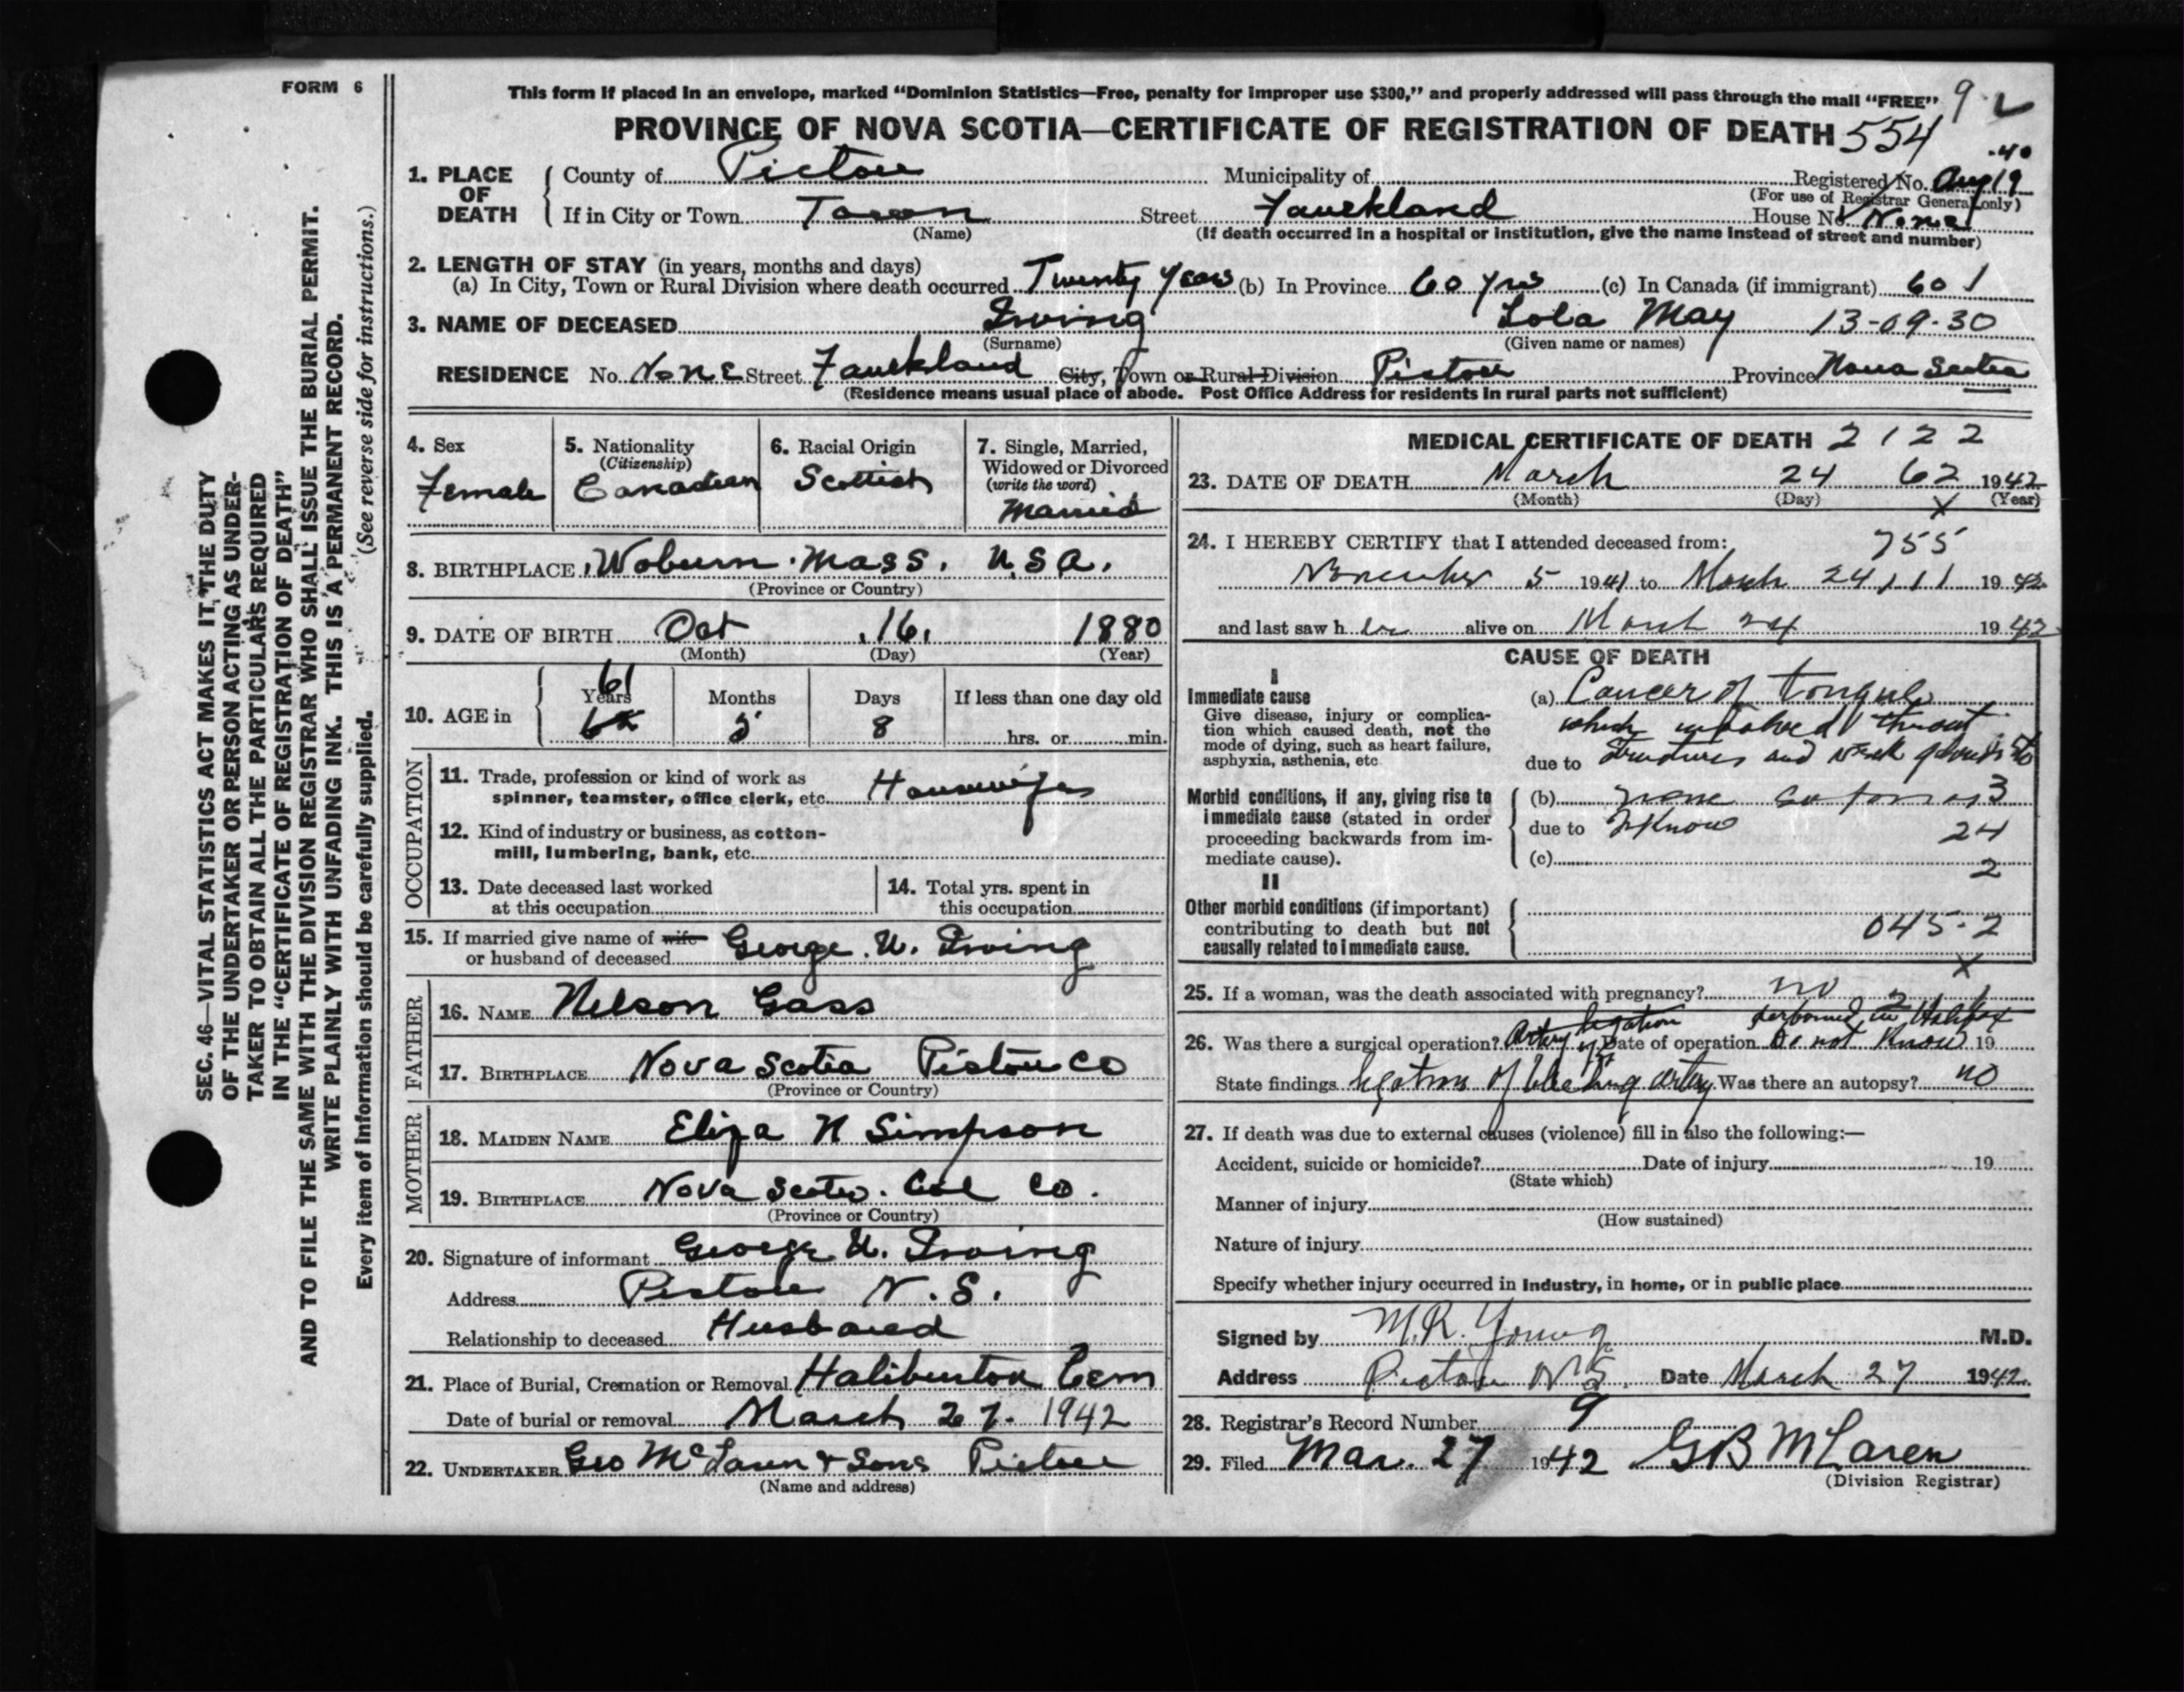 FORM 6
This form if placed in an envelope, marked "Dominion Statistics—Free, penalty for improper use $300," and properly addressed will pass through the mail "FREE"
PROVINCE OF NOVA SCOTIA—CERTIFICATE OF REGISTRATION OF DEATH 554
1. PLACE OF DEATH
County of Pictou Municipality of Registered No. Aug 19 .40
(For use of Registrar General only)
If in City or Town Town Street Faulkland House No. None
(Name) (If death occurred in a hospital or institution, give the name instead of street and number)
2. LENGTH OF STAY (in years, months and days)
(a) In City, Town or Rural Division where death occurred Twenty Years (b) In Province 60 yrs (c) In Canada (if immigrant) 60 1
3. NAME OF DECEASED Irving Lola May 13-09-30
(Surname) (Given name or names)
RESIDENCE No. None Street Faulkland City, Town or Rural Division Pictou Province Nova Scotia
(Residence means usual place of abode. Post Office Address for residents in rural parts not sufficient)
4. Sex
Female
5. Nationality
(Citizenship)
Canadian
6. Racial Origin
Scottish
7. Single, Married,
Widowed or Divorced
(write the word)
Married
8. BIRTHPLACE Woburn Mass. U.S.A.
(Province or Country)
9. DATE OF BIRTH Oct 16, 1880
(Month) (Day) (Year)
10. AGE in Years Months Days If less than one day old
61 5 8 hrs. or min.
OCCUPATION
11. Trade, profession or kind of work as
spinner, teamster, office clerk, etc. Housewife
12. Kind of industry or business, as cotton-
mill, lumbering, bank, etc.
13. Date deceased last worked
at this occupation
14. Total yrs. spent in
this occupation
15. If married give name of wife
or husband of deceased George W. Irving
FATHER
16. NAME Nelson Gass
17. BIRTHPLACE Nova Scotia Pictou Co
(Province or Country)
MOTHER
18. MAIDEN NAME Eliza N Simpson
19. BIRTHPLACE Nova Scotia. Col Co.
(Province or Country)
20. Signature of informant George W. Irving
Address Pictou N.S.
Relationship to deceased Husband
21. Place of Burial, Cremation or Removal Haliburton Cem
Date of burial or removal March 27. 1942
22. UNDERTAKER Geo McLaren & Sons Pictou
(Name and address)
MEDICAL CERTIFICATE OF DEATH 2122
23. DATE OF DEATH March 24 62 1942
(Month) (Day) (Year)
x
24. I HEREBY CERTIFY that I attended deceased from: 755
November 5 1941 to March 24 1942
and last saw her alive on March 24 1942
CAUSE OF DEATH
I
Immediate cause
Give disease, injury or complica-
tion which caused death, not the
mode of dying, such as heart failure,
asphyxia, asthenia, etc
(a) Cancer of tongue
which involved throat
due to structures and neck glands
Morbid conditions, if any, giving rise to
immediate cause (stated in order
proceeding backwards from im-
mediate cause).
(b) none as far as 3
due to I know 24
(c) 2
II
Other morbid conditions (if important)
contributing to death but not
causally related to immediate cause.
045.2
x
25. If a woman, was the death associated with pregnancy? no
26. Was there a surgical operation? Artery ligation performed in Halifax Date of operation Do not know 19
State findings ligation of bleeding artery Was there an autopsy? no
27. If death was due to external causes (violence) fill in also the following:—
Accident, suicide or homicide? Date of injury 19
(State which)
Manner of injury
(How sustained)
Nature of injury
Specify whether injury occurred in industry, in home, or in public place
Signed by M.R. Young M.D.
Address Pictou N.S. Date March 27 1942
28. Registrar's Record Number 9
29. Filed Mar. 27 1942 GB McLaren
(Division Registrar)
SEC. 46—VITAL STATISTICS ACT MAKES IT THE DUTY
OF THE UNDERTAKER OR PERSON ACTING AS UNDER-
TAKER TO OBTAIN ALL THE PARTICULARS REQUIRED
IN THE "CERTIFICATE OF REGISTRATION OF DEATH"
AND TO FILE THE SAME WITH THE DIVISION REGISTRAR WHO SHALL ISSUE THE BURIAL PERMIT.
WRITE PLAINLY WITH UNFADING INK. THIS IS A PERMANENT RECORD.
Every item of information should be carefully supplied. (See reverse side for instructions.)